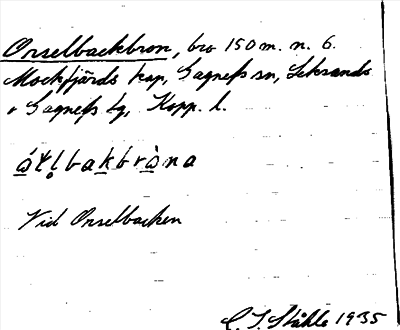 Onselbackbron, bro 150 m. n. ö.
Mockfjärds kap, Gagnefs sn, Leksands
o Gagnefs tg, Kopp. l.
ώƚl̥bakbrὼna
Vid Onselbacken
C. I. Ståhle 1935